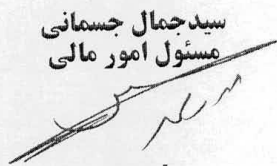 سیدجمال جسمانی
مسئول امور مالی